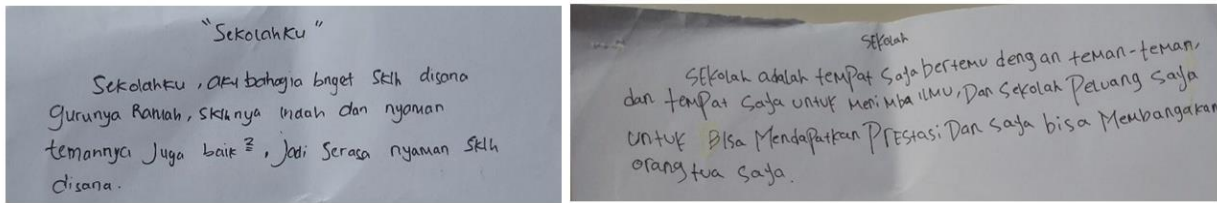 "Sekolahku"
Sekolahku, aku bahagia bnget sklh disana
gurunya Ramah, sklhnya indah dan nyaman
temannya Juga baik², jadi Serasa nyaman Sklh
disana.
SEKolah
SEKolah adalah tempat saja bertemu dengan teman-teman,
dan tempat saja untuk Menimba ILMU, Dan Sekolah Peluang saja
untuk Bisa Mendapatkan PrEstasi Dan saja bisa Membangakan
orang tua saja.